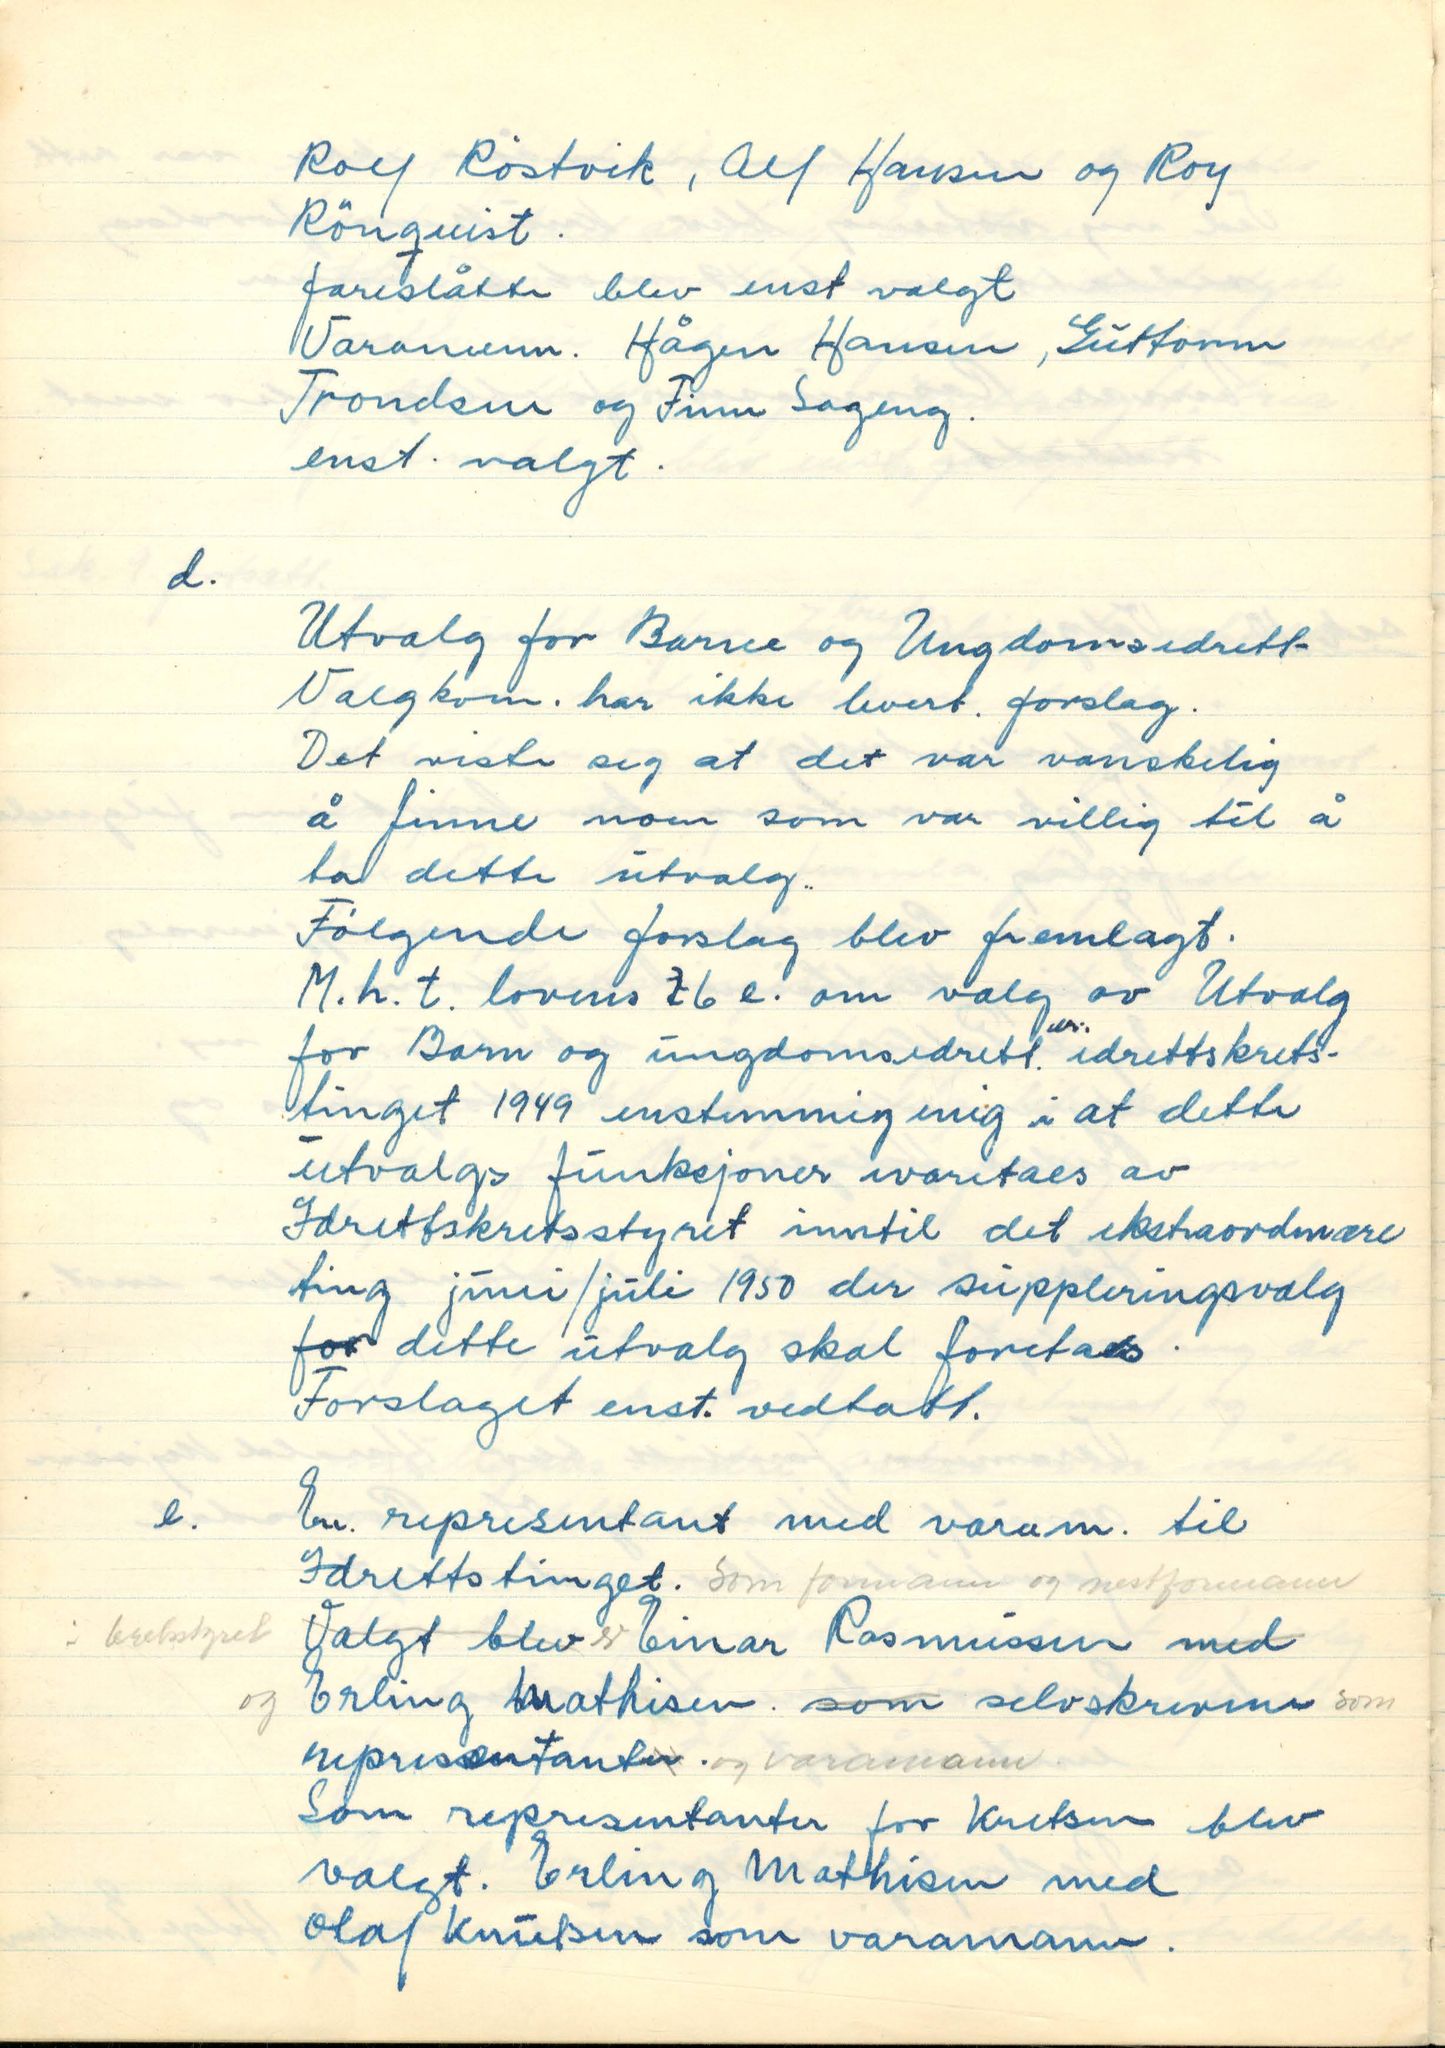 Rolf Röstvik, Alf Hansen og Roy
Rönquist.
foreslåtte blev enst valgt
Varamenn. Hågen Hansen, Guttorm
Trondsen og Finn Sageng.
enst. valgt.
d.
Utvalg for Barne og Ungdomsidrett
Valgkom. har ikke levert. forslag.
Det viste seg at det var vanskelig
å finne noen som var villig til å
ta dette utvalg.
Følgende forslag blev fremlagt.
M.h.t. lovens 6 e. om valg av Utvalg
for Barn og ungdomsidrett. er. idrettskrets-
tinget 1949 enstemmig enig i at dette
utvalgs funksjoner ivaretaes av
Idrettskretsstyret inntil det ekstraordinære
ting juni/juli 1950 der suppleringsvalg
for dette utvalg skal foretaes.
Forslaget enst. vedtatt.
e. En. representant med varam. til
Idrettstinget. Som formann og nestformann
i kretsstyret Valgt blev er Einar Rasmussen med
og Erling Mathisen. som selvskrevne som
representanter. og varamann.
Som representanter for Kretsen blev
valgt. Erling Mathisen med
Olaf Knutsen som varamann.